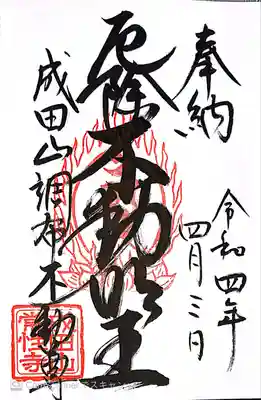 奉納
令和四年
四月三日
厄除不動明王
成田山調布不動尊
常性寺